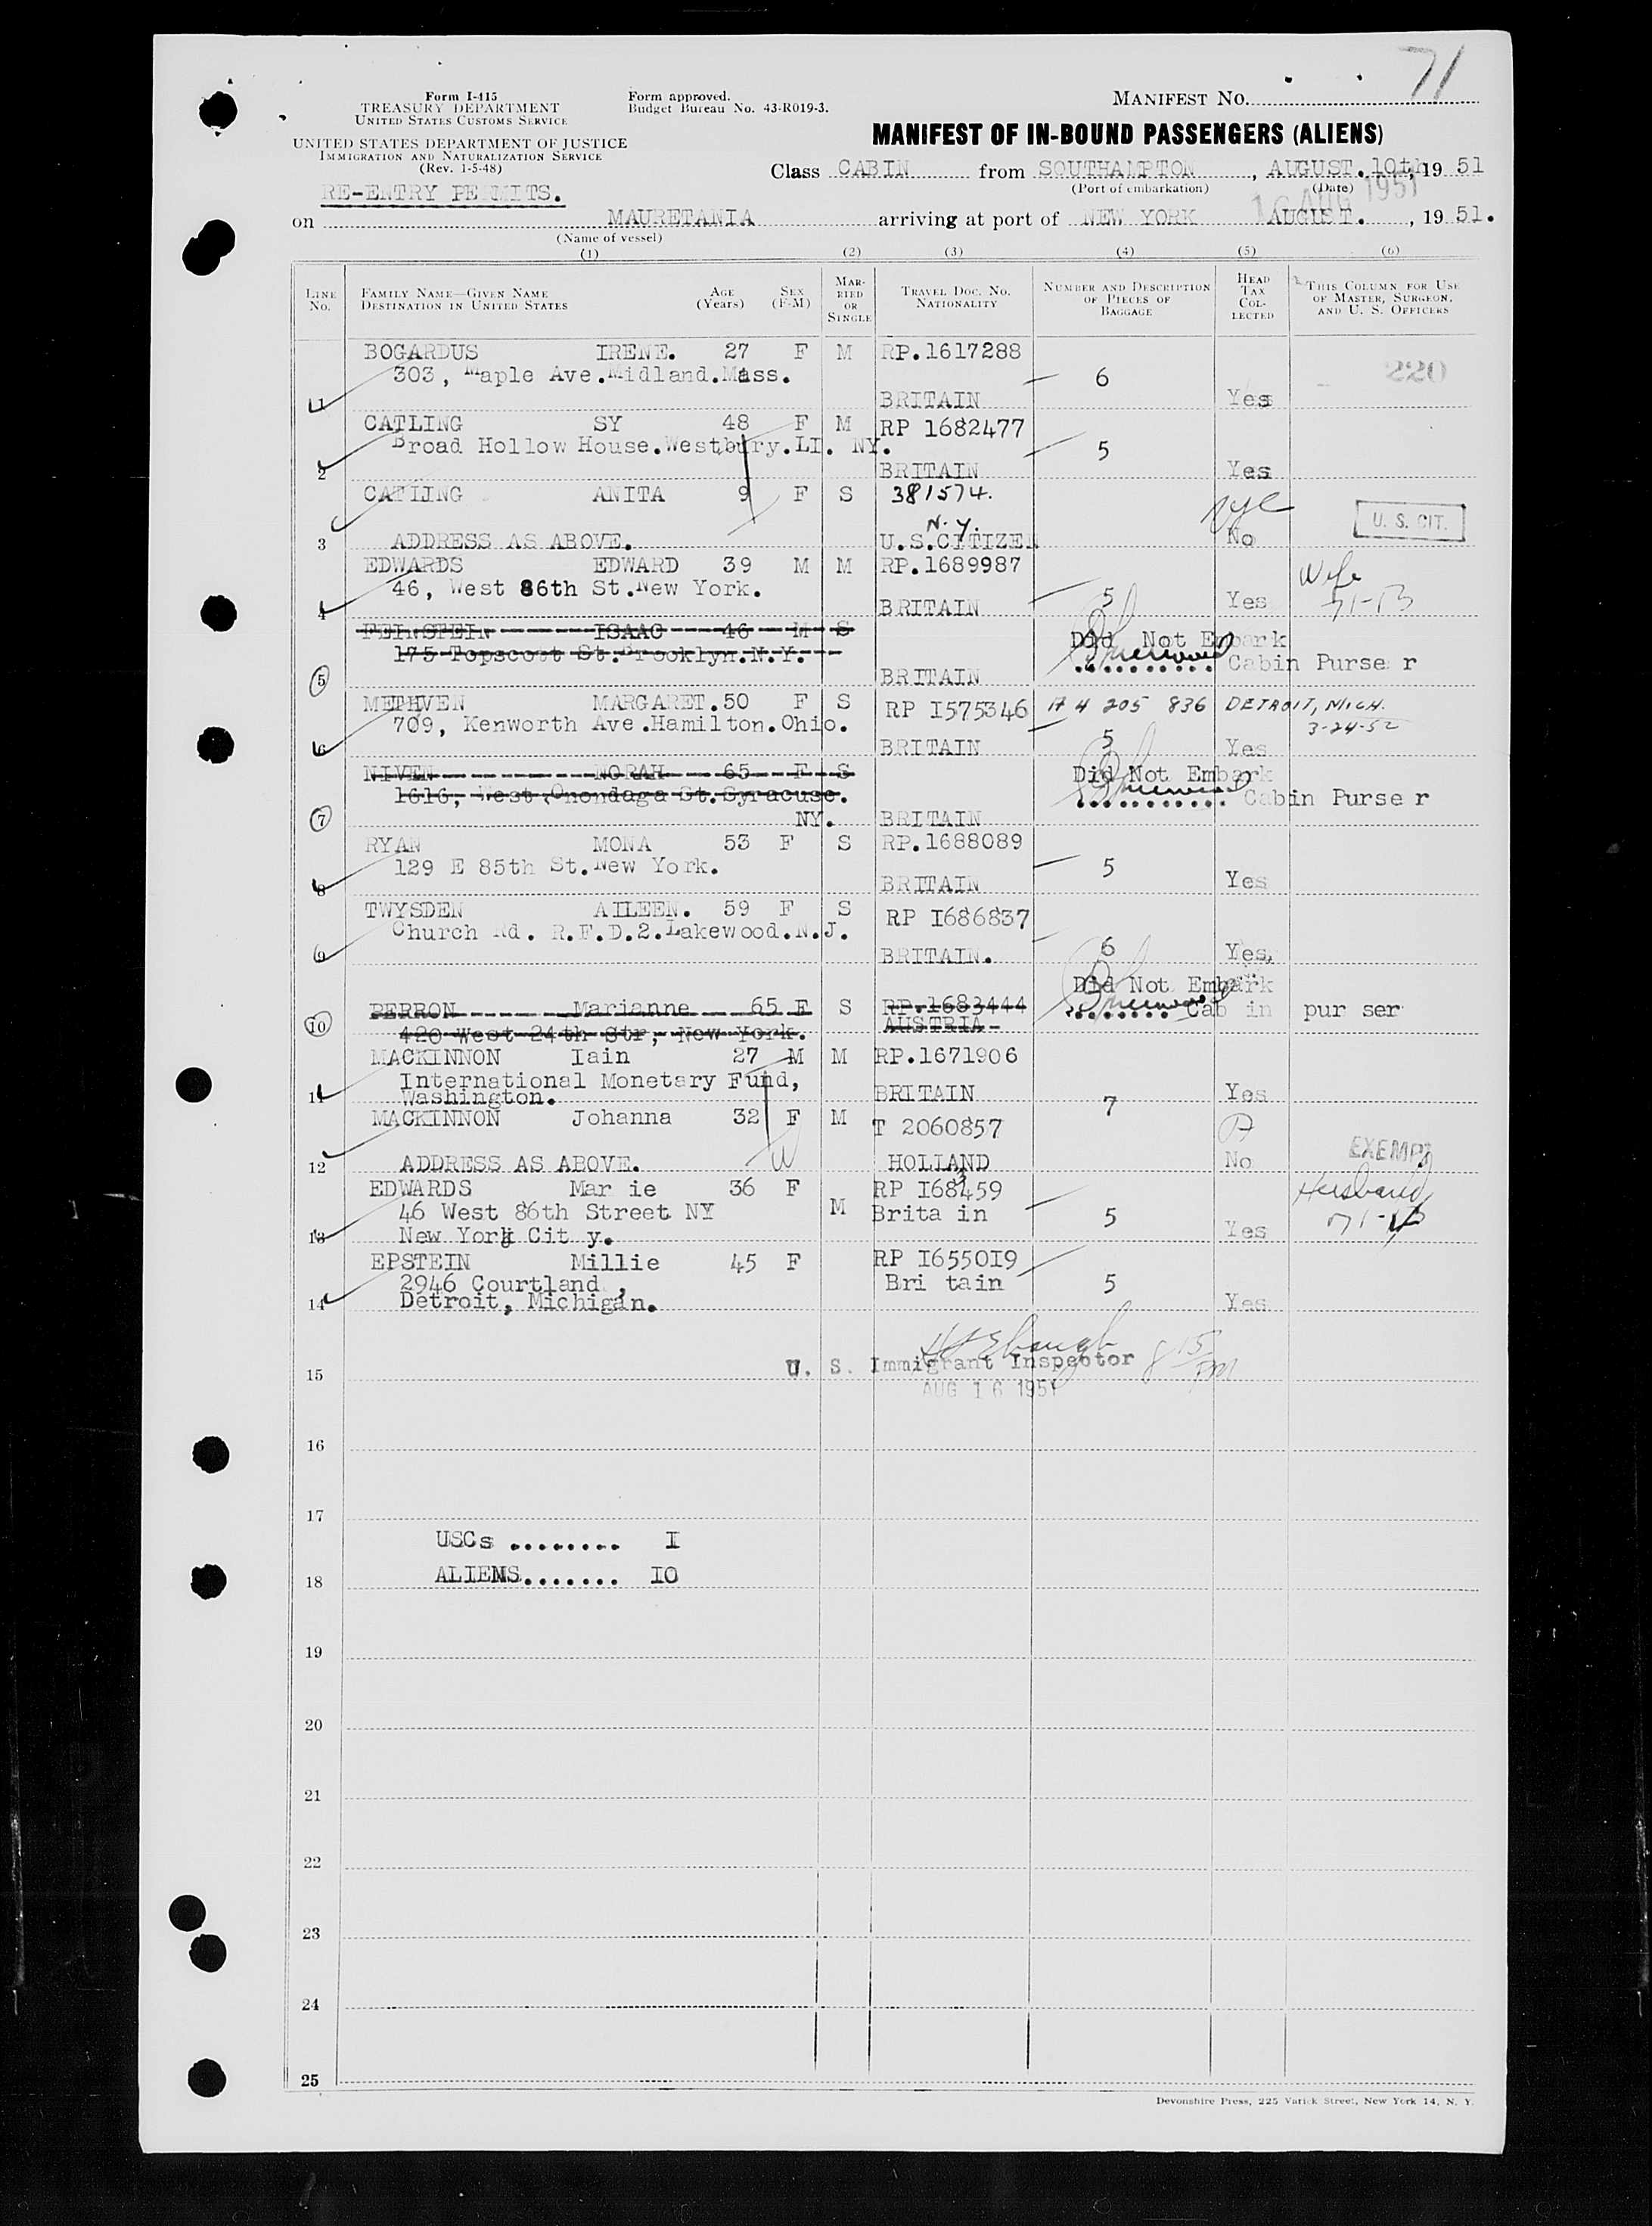 71
Form I-415
TREASURY DEPARTMENT
UNITED STATES CUSTOMS SERVICE
UNITED STATES DEPARTMENT OF JUSTICE
IMMIGRATION AND NATURALIZATION SERVICE
(Rev. 1-5-48)
Form approved.
Budget Bureau No. 43-R019-3.
MANIFEST No.
MANIFEST OF IN-BOUND PASSENGERS (ALIENS)
Class CABIN from SOUTHAMPTON, AUGUST. 10th, 19 51
(Port of embarkation) (Date)
RE-ENTRY PERMITS.
16 AUG 1951
on MAURETANIA arriving at port of NEW YORK AUGUST., 19 51.
(Name of vessel)
(1) (2) (3) (4) (5) (6)
LINE No. FAMILY NAME—GIVEN NAME DESTINATION IN UNITED STATES AGE (Years) SEX (F-M) MARRIED OR SINGLE TRAVEL DOC. No. NATIONALITY NUMBER AND DESCRIPTION OF PIECES OF BAGGAGE HEAD TAX COLLECTED THIS COLUMN FOR USE OF MASTER, SURGEON, AND U. S. OFFICERS
BOGARDUS IRENE. 27 F M RP.1617288
303, Maple Ave.Midland.Mass. 6 220
1 BRITAIN Yes
CATLING SY 48 F M RP 1682477
Broad Hollow House.Westbury.LI. NY. 5
2 BRITAIN Yes
CATLING ANITA 9 F S 381574.
N.Y. nyc U. S. CIT.
3 ADDRESS AS ABOVE. U.S.CITIZEN No
EDWARDS EDWARD 39 M M RP.1689987 Wife
46, West 86th St.New York. 71-13
4 BRITAIN 5 Yes
FEINSTEIN ISAAC 46 M S Did Not Embark
175 Topscott St.Brooklyn.N.Y. Cabin Purser
5 BRITAIN
METHVEN MARGARET. 50 F S RP I575346 A 4 205 836 DETROIT, MICH.
709, Kenworth Ave.Hamilton.Ohio. 3-24-52
6 BRITAIN 5 Yes
NIVEN NORAH 65 F S Did Not Embark
1616, West Onondaga St.Syracuse. Cabin Purser
7 NY. BRITAIN
RYAN MONA 53 F S RP.1688089
129 E 85th St.New York. 5
8 BRITAIN Yes
TWYSDEN AILEEN. 59 F S RP I686837
Church Rd. R.F.D.2.Lakewood.N.J.
9 BRITAIN. 6 Yes,
Did Not Embark
PERRON Marianne 65 F S RP.1683444 Cabin purser
10 420 West 24th Str, New York. AUSTRIA
MACKINNON Iain 27 M M RP.1671906
International Monetary Fund,
11 Washington. BRITAIN 7 Yes
MACKINNON Johanna 32 F M T 2060857
W EXEMPT
12 ADDRESS AS ABOVE. HOLLAND No
EDWARDS Marie 36 F M RP I683459 Husband
46 West 86th Street NY Britain 5
13 New York City. Yes
EPSTEIN Millie 45 F RP I655019
2946 Courtland, Britain 5
14 Detroit, Michigan. Yes
15 U. S. Immigrant Inspector 8 15/PM
AUG 16 1951
16
17
USCs ........ I
18 ALIENS....... IO
19
20
21
22
23
24
25
Devonshire Press, 225 Varick Street, New York 14, N. Y.